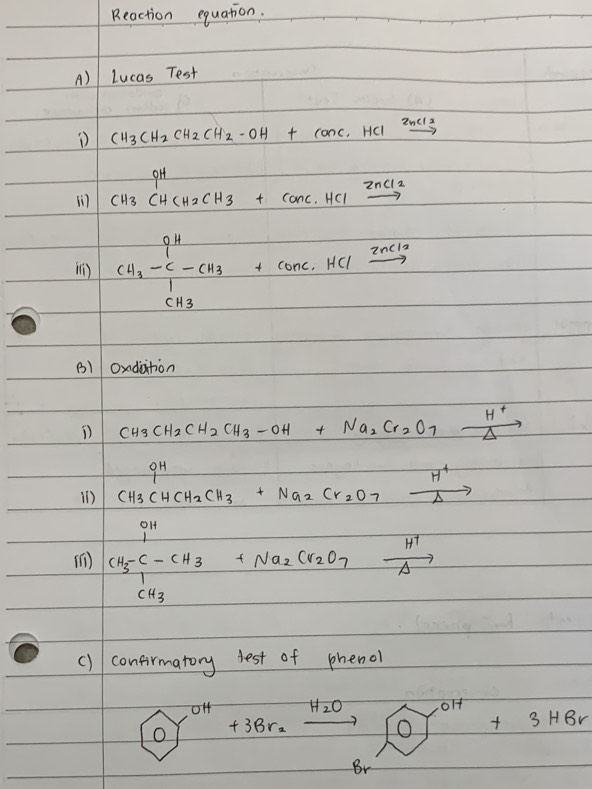 Reaction equation.
A) Lucas Test
i) CH3CH2CH2CH2-OH + conc. HCl ZnCl2 →
OH
ii) CH3CHCH2CH3 + conc. HCl ZnCl2 →
OH
iii) CH3-C-CH3 + conc. HCl ZnCl2 →
CH3
B) Oxidation
i) CH3CH2CH2CH3-OH + Na2Cr2O7 H+ → Δ
OH
ii) CH3CHCH2CH3 + Na2Cr2O7 H+ → Δ
OH
iii) CH3-C-CH3 + Na2Cr2O7 H+ → Δ
CH3
C) Confirmatory test of phenol
OH + 3Br2 H2O → OH + 3HBr
Br